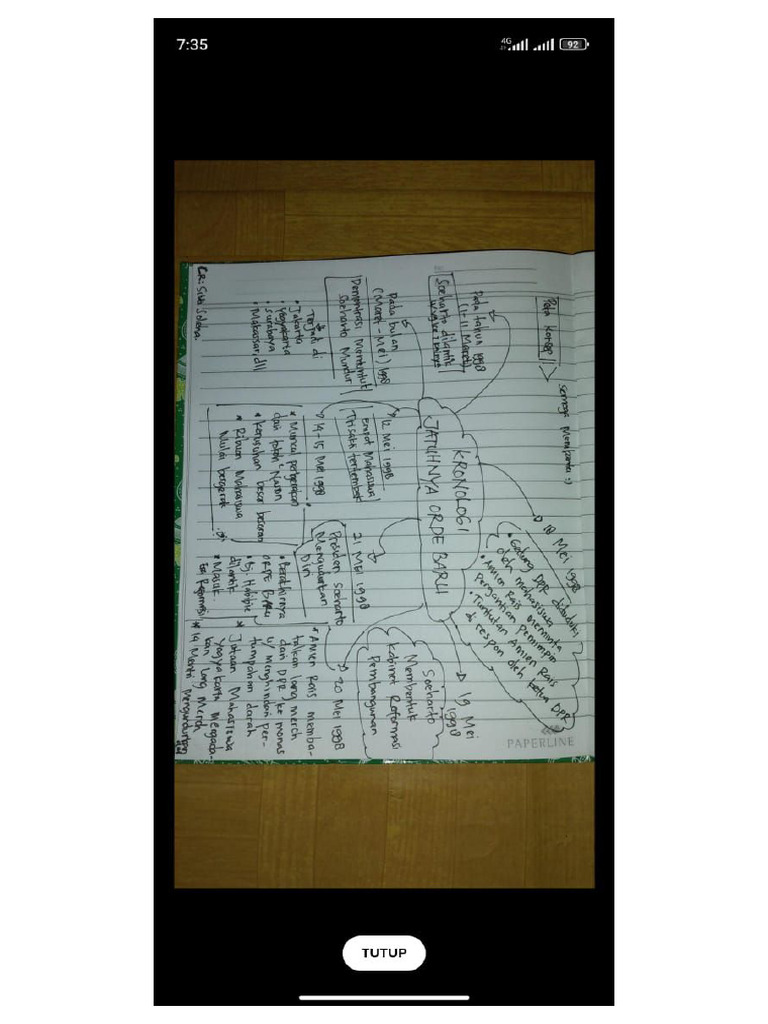 7:35
4G
92
Peta konsep
semoga membantu :)
KRONOLOGI
JATUHNYA ORDE BARU
Pada tahun 1998
(1-11 Maret)
Soeharto dilantik
Pada bulan
(Maret-Mei) 1998
Demonstrasi Menuntut
Soeharto Mundur
Terjadi di
• Jakarta
• Yogyakarta
• Surabaya
• Makassar, dll
12 Mei 1998
Empat Mahasiswa
Trisakti tertembak
14-15 Mei 1998
• Muncul pergerakan
dari tokoh" Nasion
• Kerusuhan besar besaran
• Ribuan Mahasiswa
Mulai bergerak
18 Mei 1998
• Gedung DPR diduduki
oleh mahasiswa
• Amien Rais meminta
Pergantian Pemimpin
• Tuntutan Amien Rais
di respon oleh ketua DPR
19 Mei
1998
Soeharto
Membentuk
Kabinet Reformasi
Pembangunan
20 Mei 1998
• Amien Rais memba-
talkan long march
dari DPR ke monas
u/ menghindari per-
tumpahan darah
• Jutaan Mahasiswa
Yogyakarta mengada-
kan Long March
• 14 Menteri Mengundurkan
21 Mei 1998
Presiden Soeharto
Mengundurkan
Diri
• Berakhirnya
ORDE BARU
• Bj. Habibie
dilantik
• Masuk
Era Reformasi
PAPERLINE
TUTUP